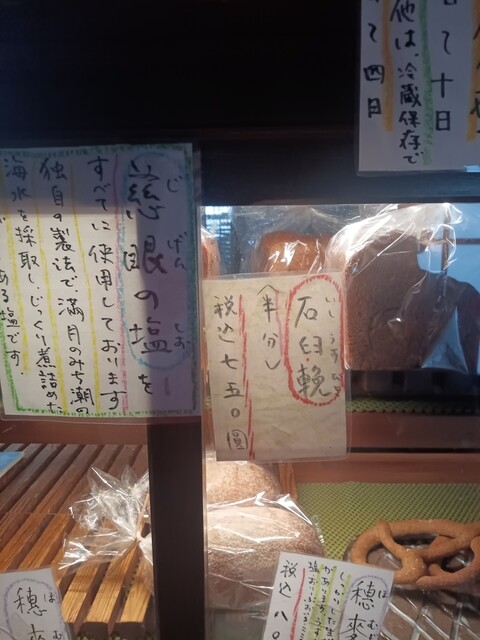 て十日
他は、冷蔵保存で
て四日
じげん しお
慈眼の塩を
すべてに使用しております
独自の製法で、満月のみち潮の
海水を採取し、じっくり煮詰めた
ある塩です。
いし うす
石臼輓
(半分)
税込七五〇圓
ほむ
穂
しっかりした
があります
税込八〇
ほむ
穂